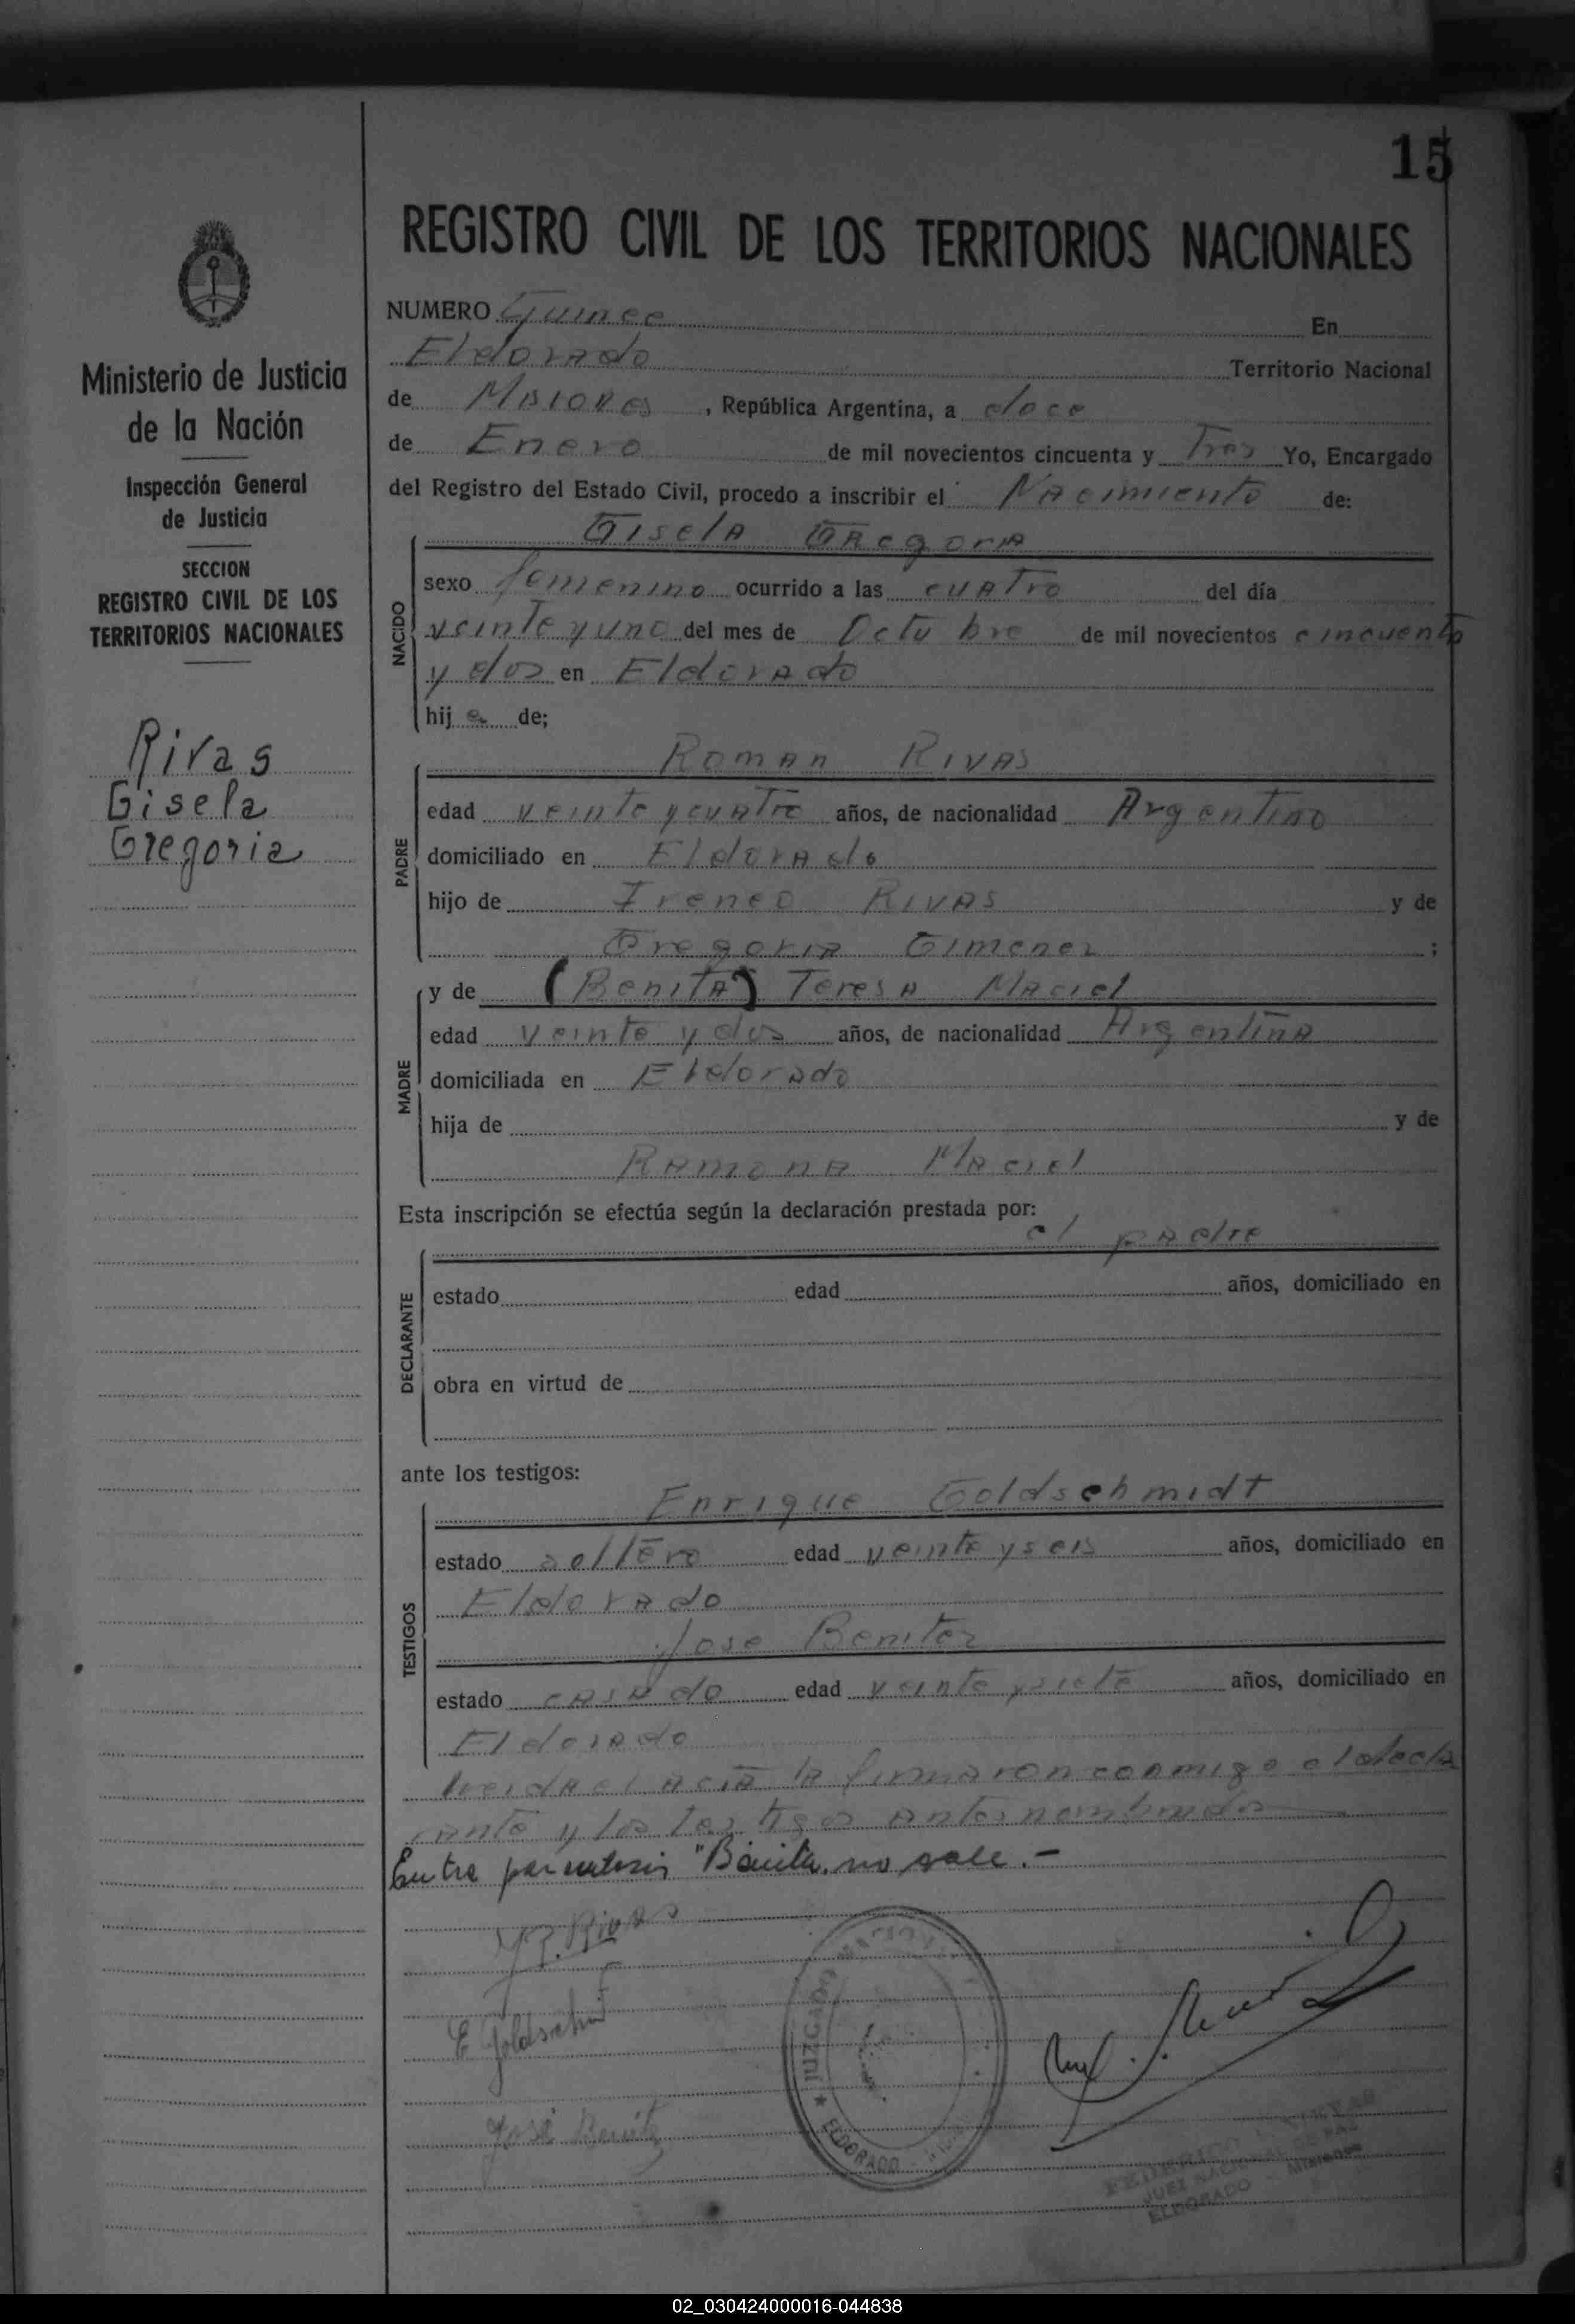 15
REGISTRO CIVIL DE LOS TERRITORIOS NACIONALES
Ministerio de Justicia
de la Nación
Inspección General
de Justicia
SECCION
REGISTRO CIVIL DE LOS
TERRITORIOS NACIONALES
Rivas
Gisela
Gregoria
NUMERO Quince En
Eldorado Territorio Nacional
de Misiones, República Argentina, a doce
de Enero de mil novecientos cincuenta y Tres Yo, Encargado
del Registro del Estado Civil, procedo a inscribir el Nacimiento de:
NACIDO
Gisela Gregoria
sexo femenino ocurrido a las cuatro del día
veinte y uno del mes de Octubre de mil novecientos cincuenta
y dos en Eldorado
hija de;
PADRE
Roman Rivas
edad veinte y cuatro años, de nacionalidad Argentino
domiciliado en Eldorado
hijo de Ireneo Rivas y de
Gregoria Gimenez;
MADRE
y de (Benita) Teresa Maciel
edad veinte y dos años, de nacionalidad Argentina
domiciliada en Eldorado
hija de y de
Ramona Maciel
Esta inscripción se efectúa según la declaración prestada por:
DECLARANTE
el padre
estado edad años, domiciliado en
obra en virtud de
ante los testigos:
TESTIGOS
Enrique Goldschmidt
estado soltero edad veinte y seis años, domiciliado en
Eldorado
Jose Benitez
estado casado edad veinte y siete años, domiciliado en
Eldorado
leida el acta la firmaron conmigo el decla
rante y los testigos antes nombrados
Entre parentesis "Benita. no vale.-
Rivas
E Goldschmidt
José Benitez
JUZGADO NACIONAL
ELDORADO
JUEZ NACIONAL DE PAZ
ELDORADO - Misiones
02_030424000016-044838